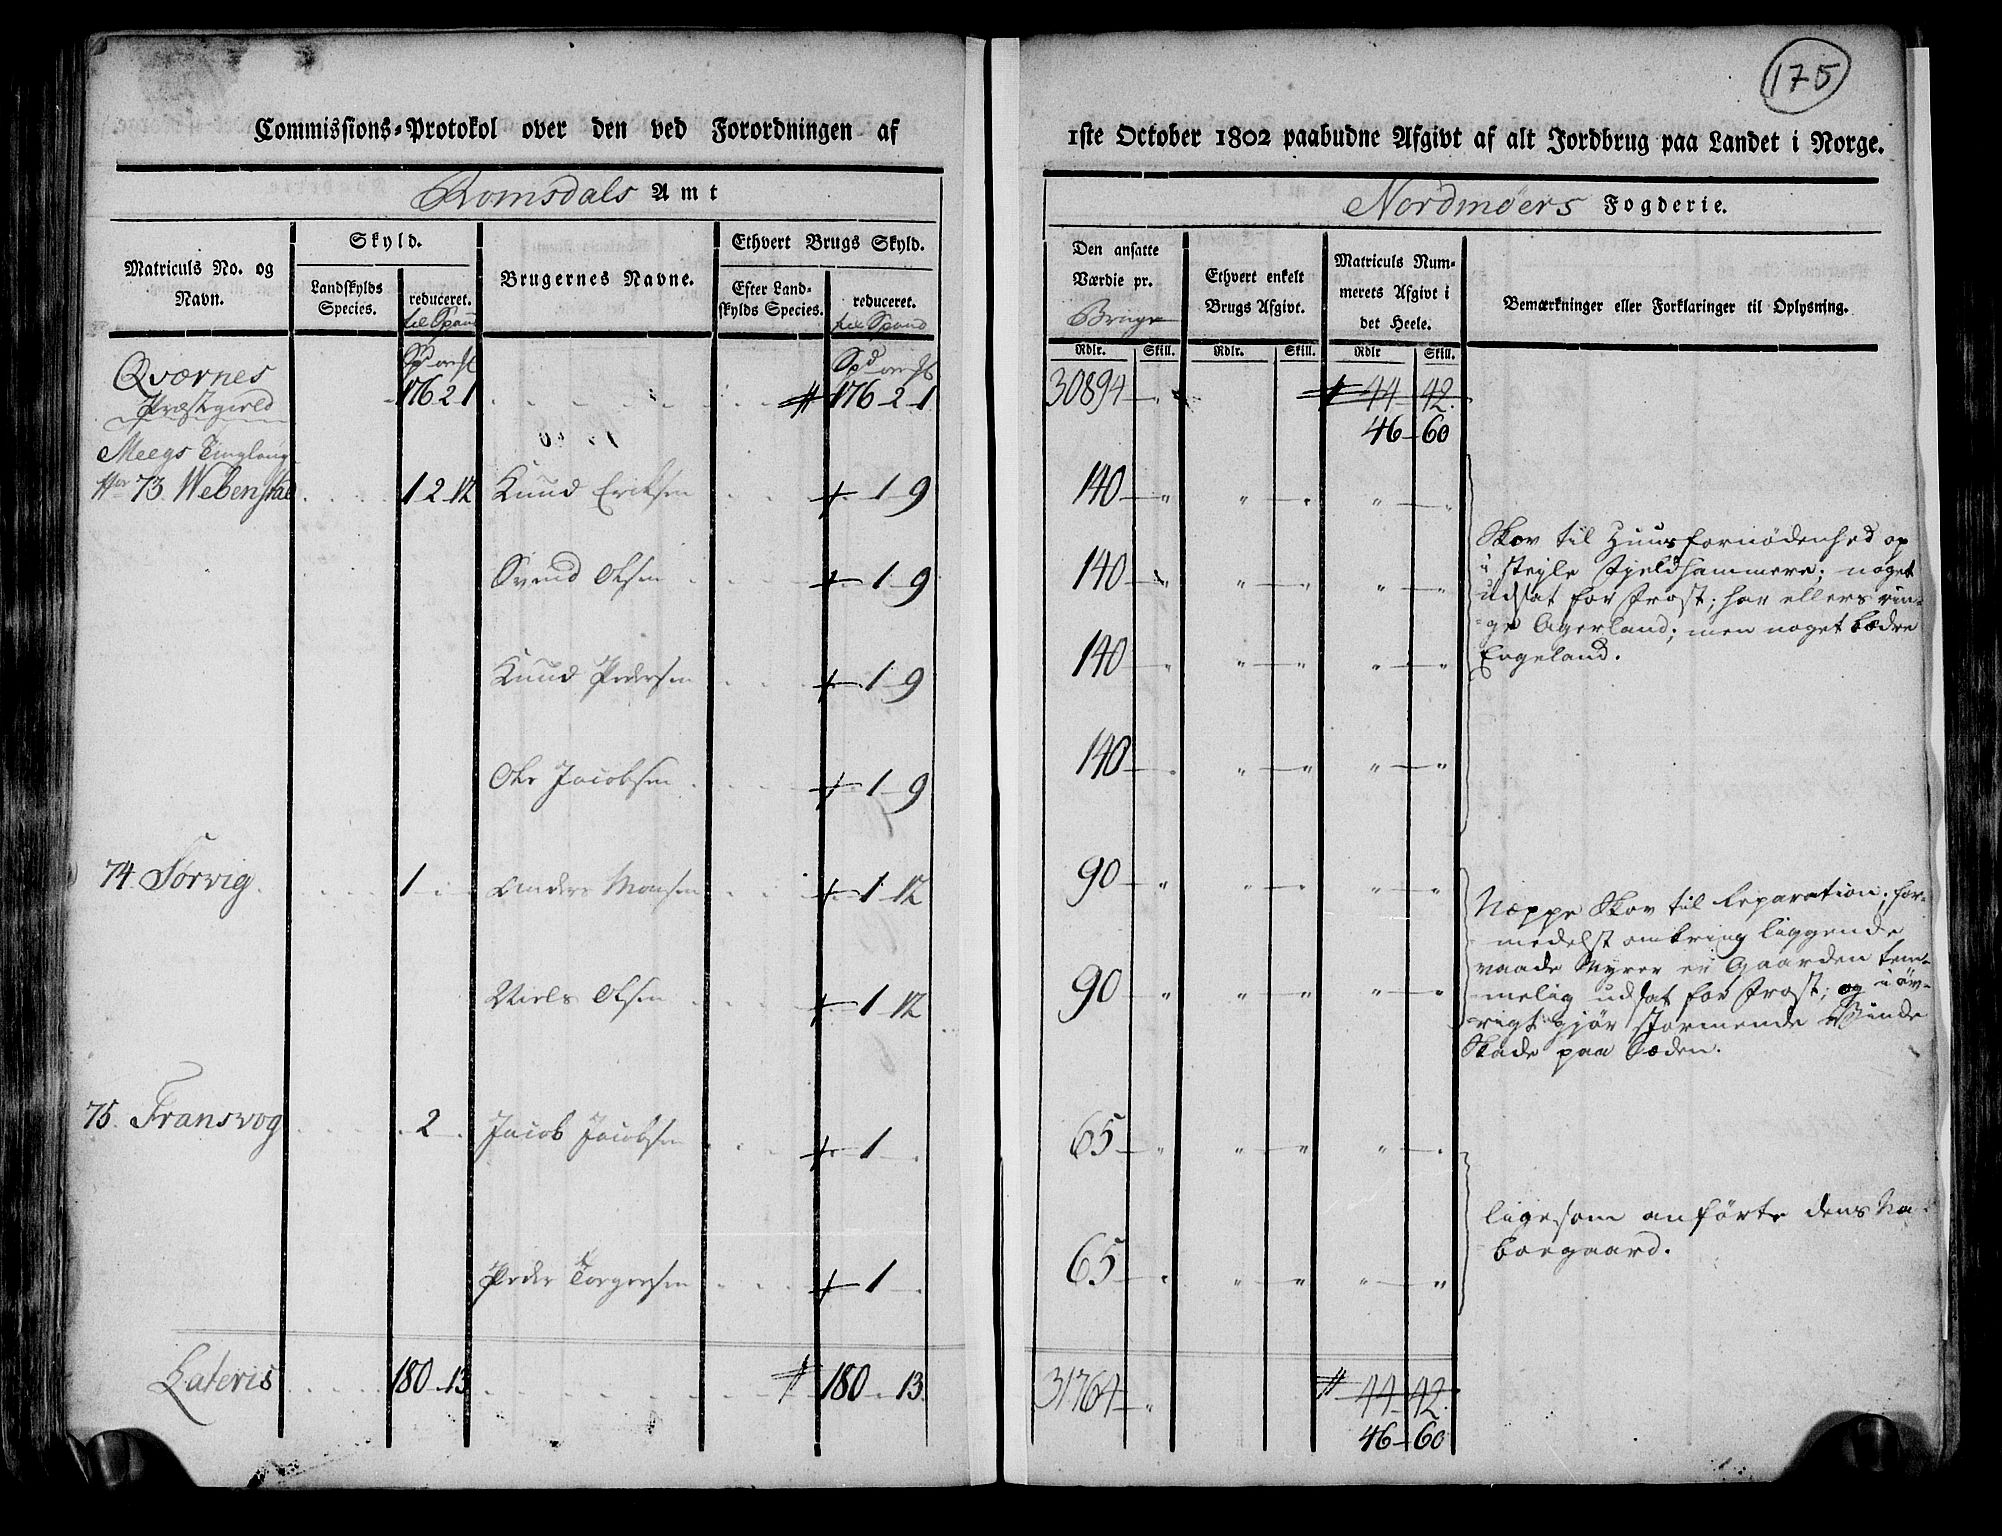 175
Commissions-Protokol over den ved Forordningen af
1ste October 1802 paabudne Afgivt af alt Jordbrug paa Landet i Norge.
Romsdals Amt
Nordmøers Fogderie.
Matriculs No. og Navn.
Skyld.
Landskylds Species.
reduceret. til Spand
Brugernes Navne.
Ethvert Brugs Skyld.
Efter Landskylds Species.
reduceret. til Spand
Den ansatte Værdie pr. Bruge
Ethvert enkelt Brugs Afgivt.
Matriculs Nummerets Afgivt i det Heele.
Bemærkninger eller Forklaringer til Oplysning.
Rdlr. Skill. Rdlr. Skill. Rdlr Skill.
Qværnes 176 2 1 176 2 1 30894 44 42
Præstegield 46 60
Meegs Tinglaug
No 73. Webenstad 1 2 12 Knud Eriksen 1 9 140
Svend Olsen 1 9 140
Knud Pedersen 1 9 140
Ole Jacobsen 1 9 140
Skov til Huusfornødenhed op
i steyle Fjeldhammere; noget
udsat for Frost; har ellers rin-
ge Agerland; men noget bedre
Engeland.
74. Sørvig 1 Anders Monsen 1 12 90
Niels Olsen 1 12 90
Næppe Skov til Reparation; for-
medelst omkring liggende
vaade Myrer er Gaarden tem-
melig udsat for Frost; og i øv-
rigt gjør stormende Vinde
Skade paa Sæden.
75. Fransvog 2 Jacob Jacobsen 1 65
Peder Torgersen 1 65
ligesom anførte dens Na-
boegaard.
Lateris 180 13 180 13 31764 44 42
46 60